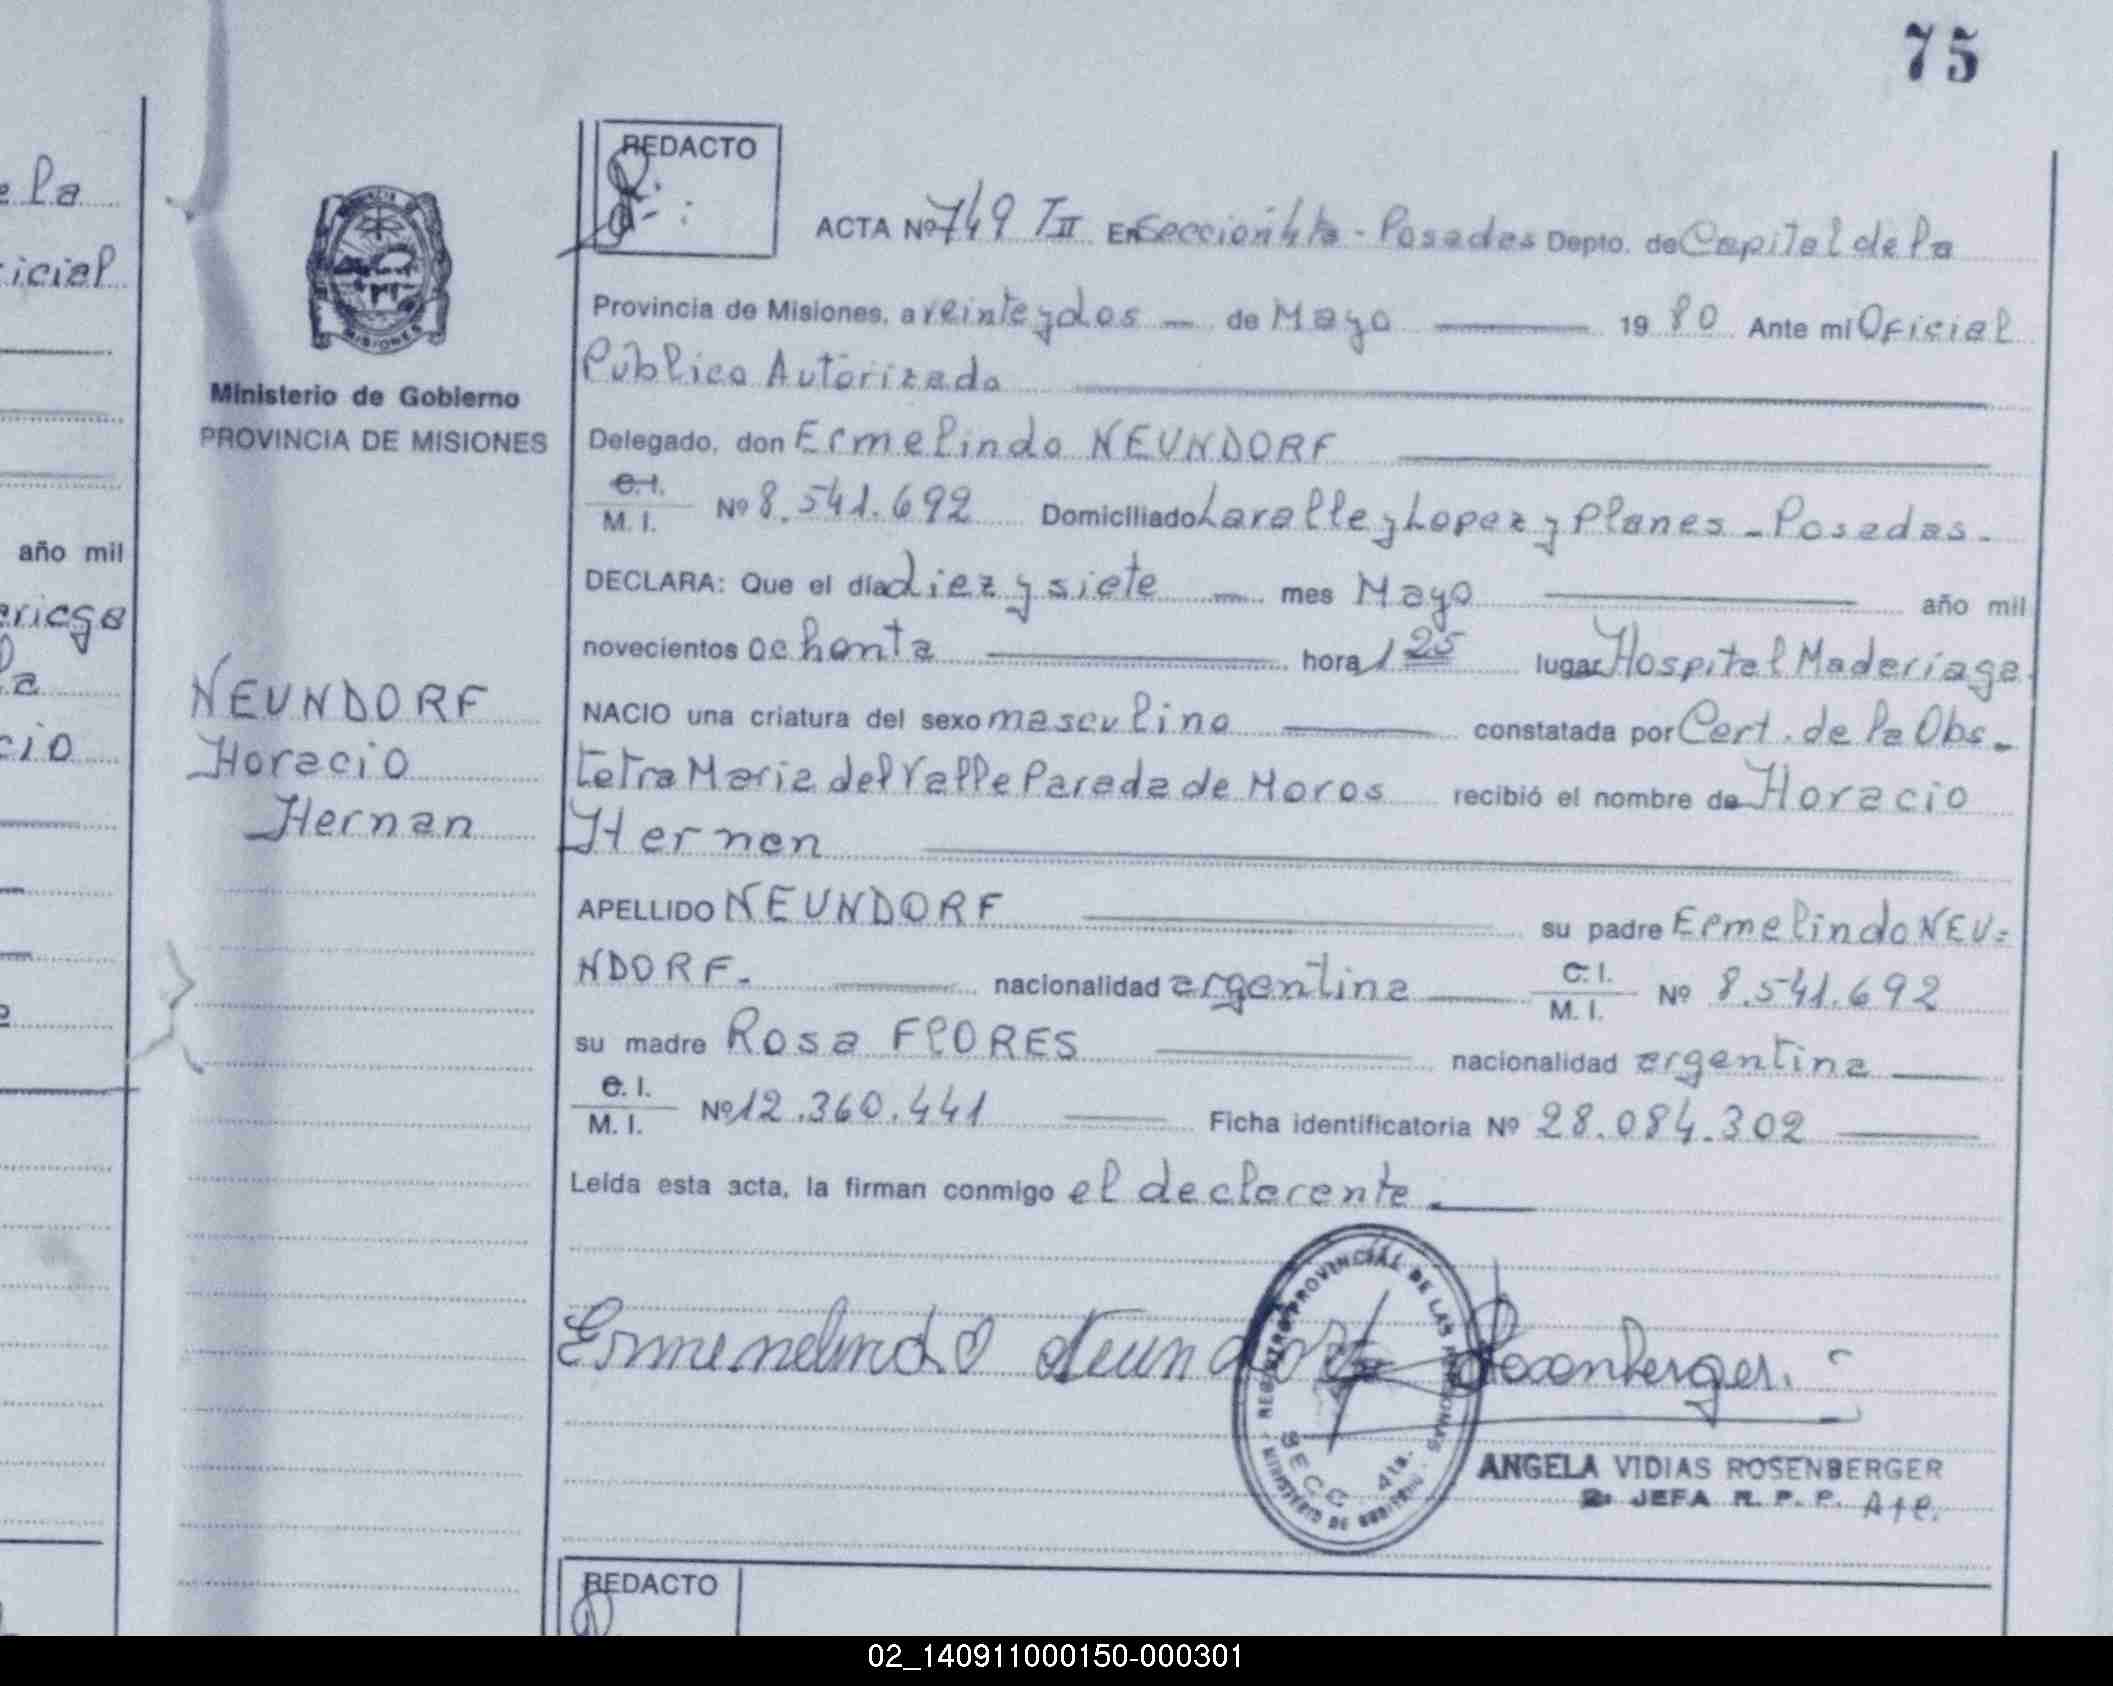 75
REDACTO
ACTA Nº 749 TII En Sección 4ta - Posadas Depto. de Capital de la
Provincia de Misiones, a veinte y dos — de Mayo — 19 80 Ante mi Oficial
Público Autorizado
Delegado, don Ermelindo NEUNDORF
C. I.
M. I. Nº 8.541.692 Domiciliado Lavalle y Lopez y Planes - Posadas -
DECLARA: Que el día diez y siete — mes Mayo — año mil
novecientos ochenta — hora 1 25 lugar Hospital Madariaga.
NACIO una criatura del sexo masculino — constatada por Cert. de la Obs-
tetra Maria del Valle Parada de Moros recibió el nombre de Horacio
Hernan
APELLIDO NEUNDORF — su padre Ermelindo NEU=
NDORF. — nacionalidad argentina — C. I.
M. I. Nº 8.541.692
su madre Rosa FLORES — nacionalidad argentina —
C. I.
M. I. Nº 12.360.441 — Ficha identificatoria Nº 28.084.302 —
Leída esta acta, la firman conmigo el declarente.
Ermenelindo Neundorf Rosenberger.
REGISTRO PROVINCIAL DE LAS PERSONAS
SECC. 4ta.
MINISTERIO DE GOBIERNO
ANGELA VIDIAS ROSENBERGER
2ª JEFA R. P. P.
REDACTO
PROVINCIA
MISIONES
Ministerio de Gobierno
PROVINCIA DE MISIONES
NEUNDORF
Horacio
Hernan
e la
icial
año mil
ariaga
la
cio
02_140911000150-000301